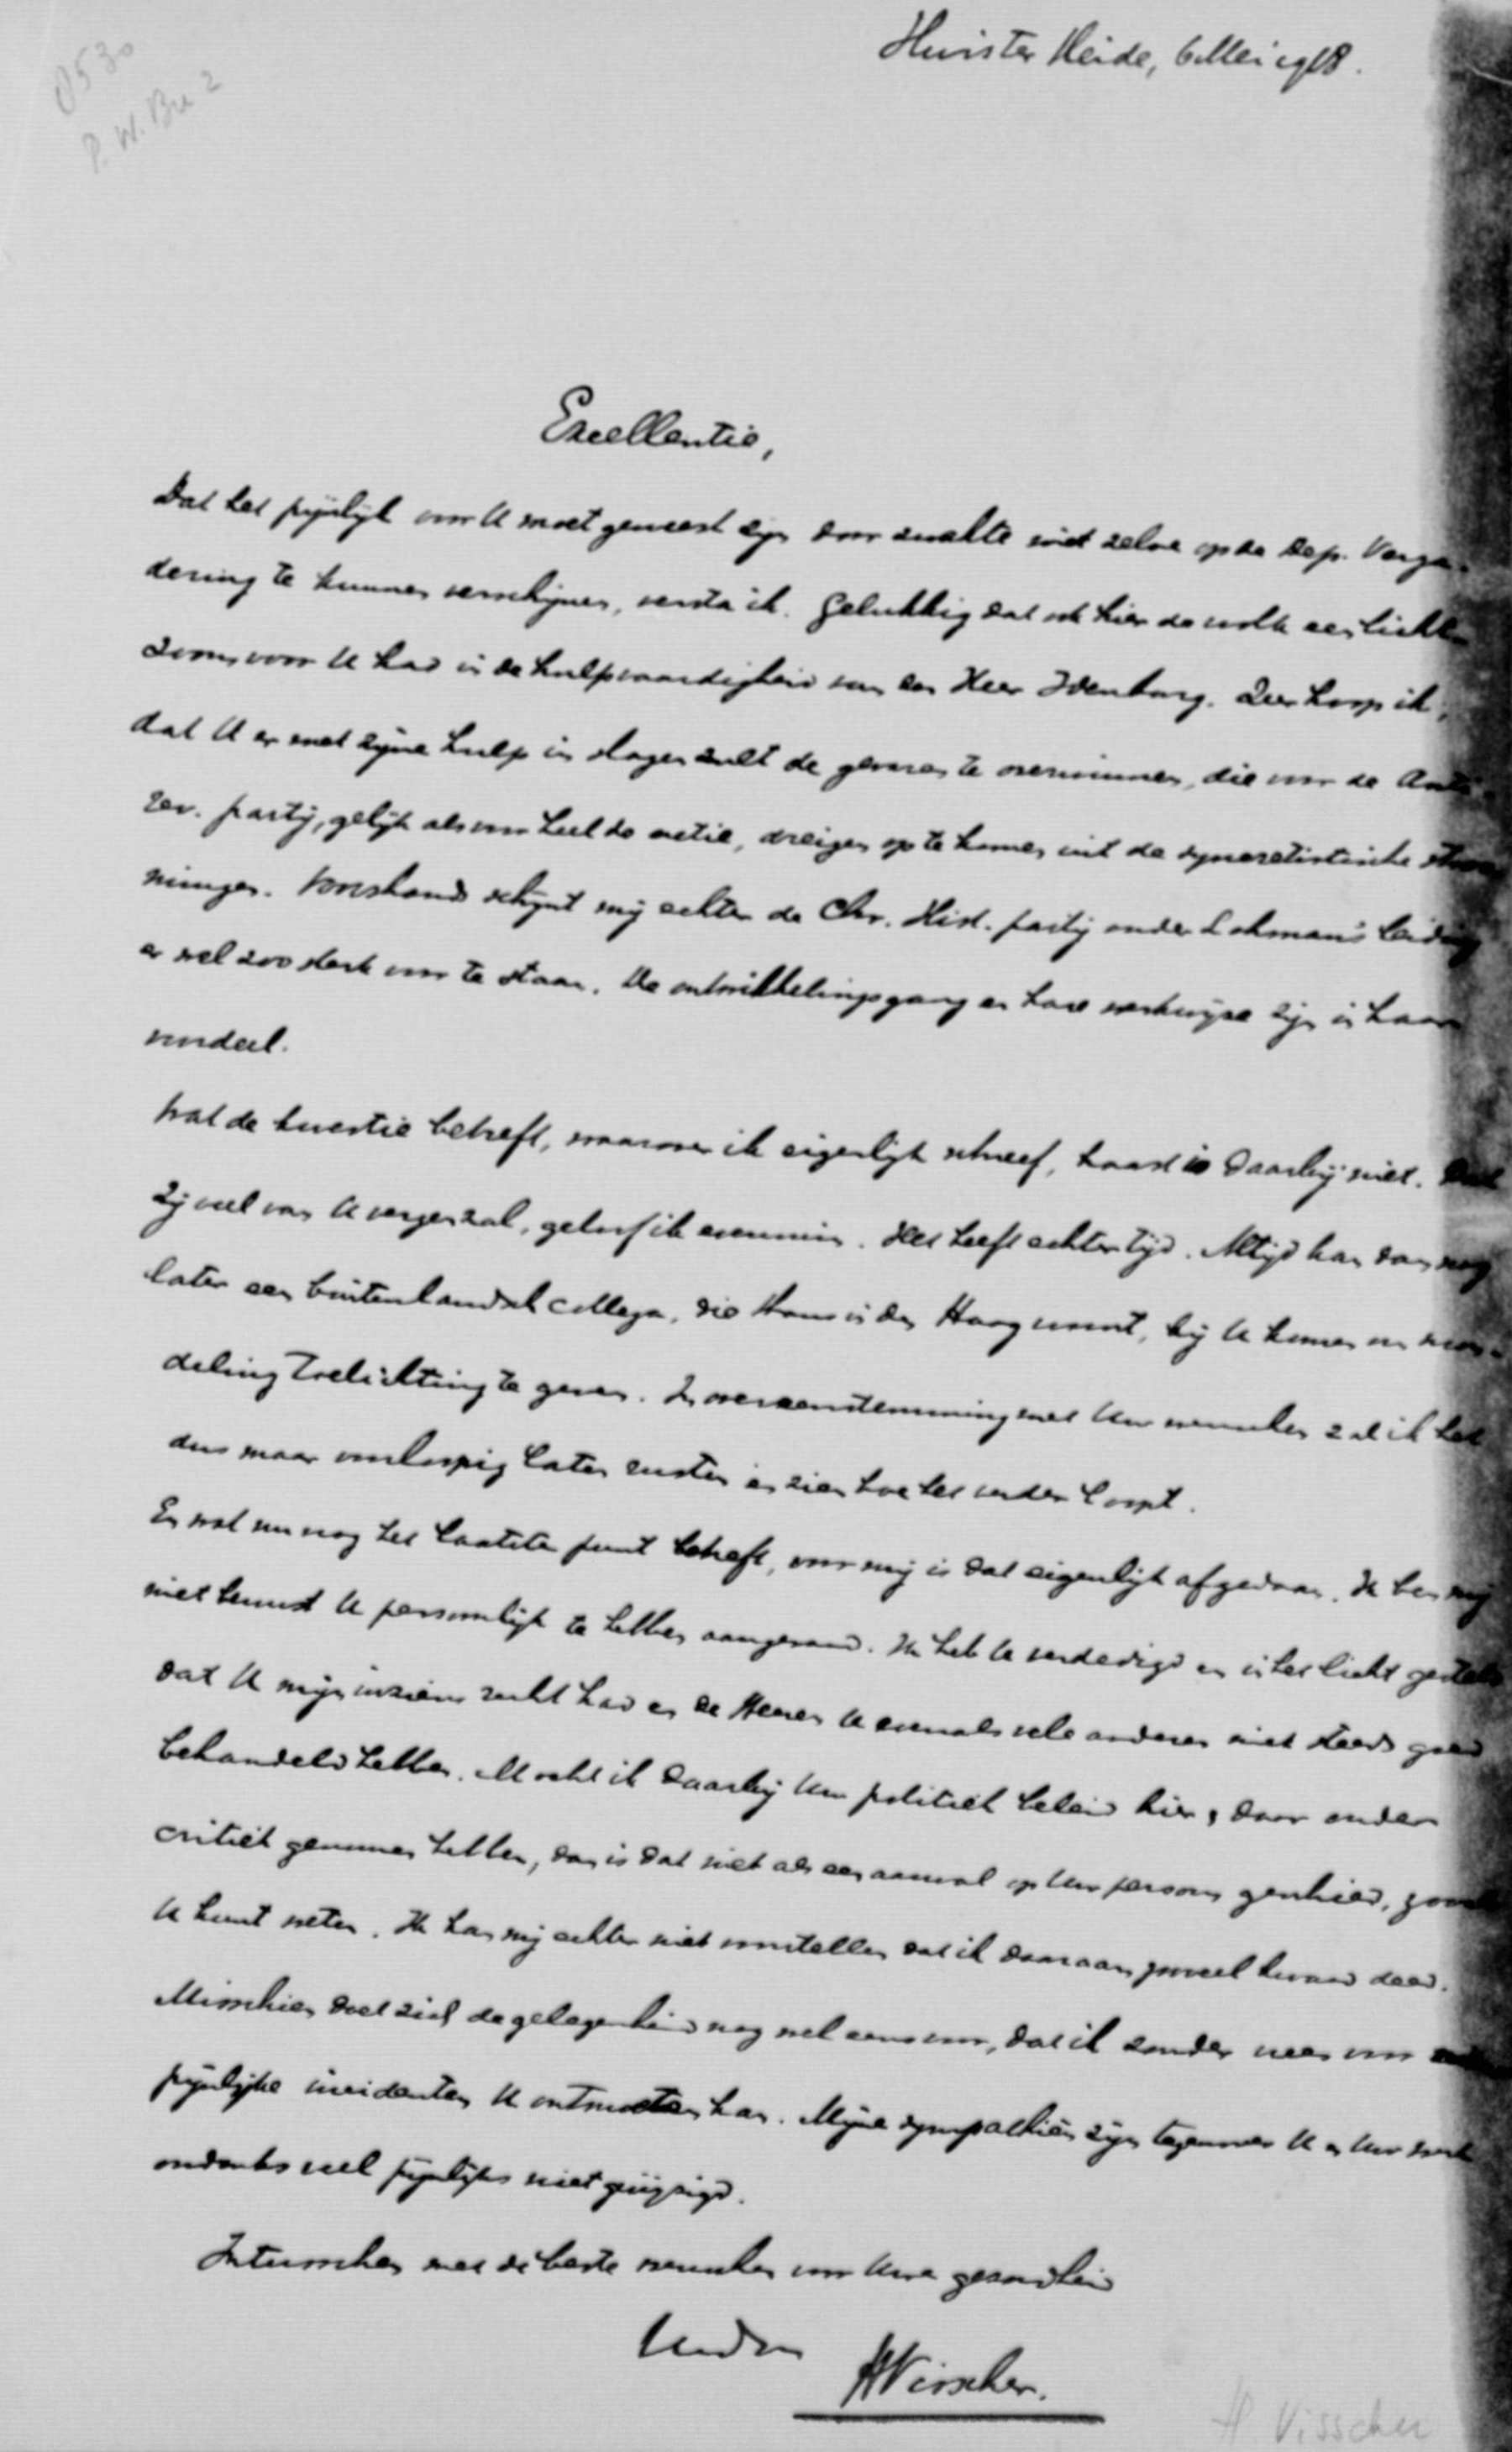 0530
P. W. Bre 2
Huis ter Heide, 6 Mei 1918.
Excellentie,
Dat het pijnlijk voor U moet geweest zijn door zwakte niet zelve op de Dep. Verga-
dering te kunnen verschijnen, versta ik. Gelukkig dat ook hier de wolk een lichten
zoom voor U had in de hulpvaardigheid van den Heer Idenburg. Zeer hoop ik,
dat U er met zijne hulp in slagen zult de gevaren te overwinnen, die voor de Anti-
rev. partij, gelijk als voor heel de natie, dreigen op te komen uit de syncretistische stroo-
mingen. Voorshands schijnt mij echter de Chr. Hist. partij onder Lohman's leiding
er wel zoo sterk voor te staan. De ontwikkelingsgang en hare werkwijze zijn in haar
voordeel.
Wat de kwestie betreft, waarover ik eigenlijk schreef, haast is daarbij niet. Dat
zij veel van U vergen zal, geloof ik evenmin. Het heeft echter tijd. Altijd kan dan nog
later een buitenlandsch collega, die thans in den Haag woont, bij U komen om mon-
deling toelichting te geven. In overeenstemming met Uw wenschen zal ik het
dus maar voorloopig laten rusten en zien hoe het verder loopt.
En wat nu nog het laatste punt betreft, voor mij is dat eigenlijk afgedaan. Ik ben mij
niet bewust U persoonlijk te hebben aangerand. Ik heb U verdedigd en in het licht gesteld
dat U mijns inziens recht had en de Heeren U evenals vele anderen niet steeds goed
behandeld hebben. Mocht ik daarbij Uw politiek beleid hier en daar onder
critiek genomen hebben, dan is dat niet als een aanval op Uw persoon geschied, zooals
U kunt weten. Ik kan mij echter niet voorstellen dat ik daaraan zooveel kwaad deed.
Misschien doet zich de gelegenheid nog wel eens voor, dat ik zonder vrees voor
pijnlijke incidenten U ontmoeten kan. Mijne sympathieën zijn tegenover U en Uw werk
ondanks veel pijnlijks niet gewijzigd.
Intusschen met de beste wenschen voor Uwe gezondheid
HVisscher.
H. Visscher